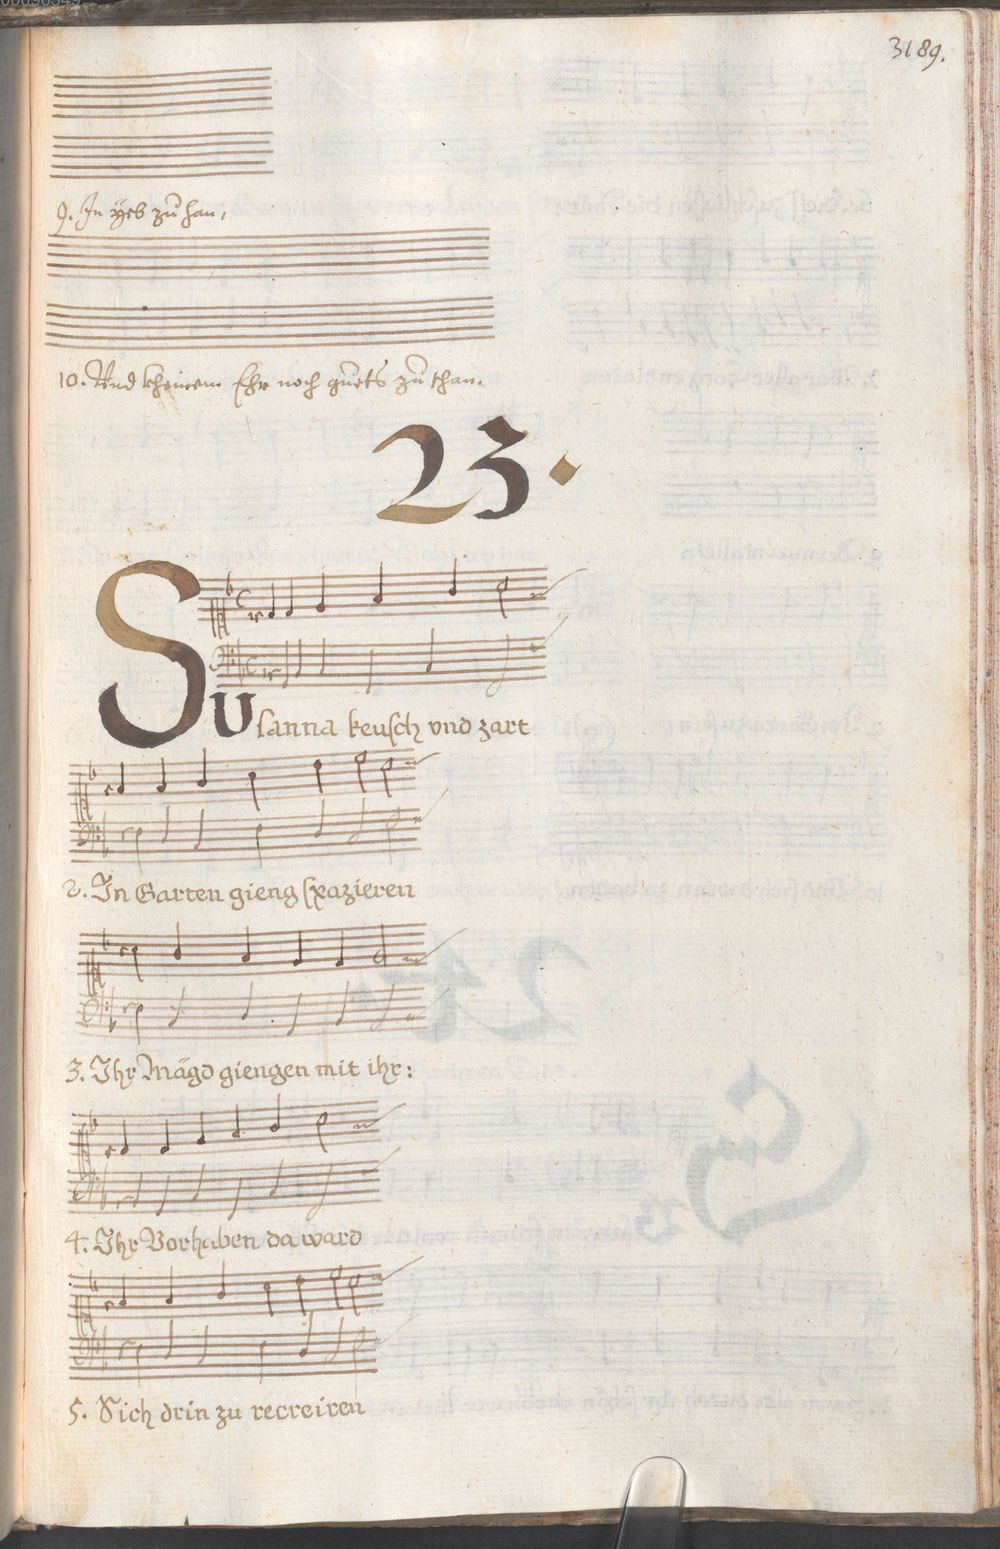 3189.
9. In yeb zu han,
10. Und kheinem Ehr noch guets zu than.
23.
Susanna keusch vnd zart
2. In Garten gieng spazieren
3. Ihr Mägd giengen mit ihr:
4. Ihr Vorhaben da ward
5. Sich drin zu recreiren